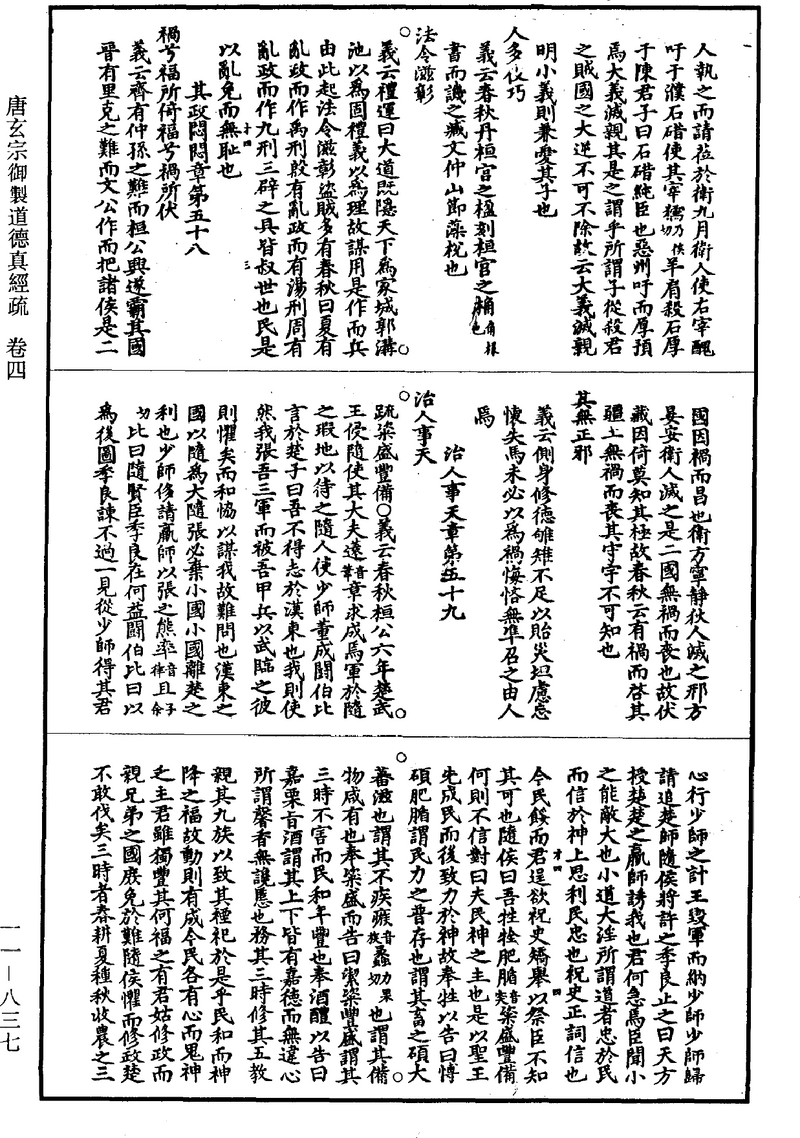 唐玄宗御製道德真經疏 卷四
人執之而請蒞於衛九月衛人使右宰醜
吁于濮石碏使其宰獳乃侯切羊肩殺石厚
于陳君子曰石碏純臣也惡州吁而厚預
焉大義滅親其是之謂乎所謂子從殺君
之賊國之大逆不可不除故云大義滅親
明小義則兼愛其子也
人多伎巧
義云春秋丹桓宮之楹刻桓宮之桷
書而譏之臧文仲山節藻梲也
法令滋彰
義云禮運曰大道既隱天下為家城郭溝
池以為固禮義以為理故謀用是作而兵
由此起法令滋彰盜賊多有春秋曰夏有
亂政而作禹刑殷有亂政而有湯刑周有
亂政而作九刑三辟之具皆叔世也民是
以亂免而無恥也
其政悶悶章第五十八
禍兮福所倚福兮禍所伏
義云齊有仲孫之難而桓公興遂霸其國
晉有里克之難而文公作而把諸侯是二
國因禍而昌也衛方寧靜狄人滅之邢方
晏安衛人滅之是二國無禍而喪也故伏
藏因倚莫知其極故春秋云有禍而啓其
疆土無禍而喪其守宇不可知也
其無正邪
義云側身修德雊雉不足以貽災坦慮忘
懷失馬未必以為禍悔恡無準召之由人
焉
治人事天章第五十九
治人事天
疏粢盛豐備○義云春秋桓公六年楚武
王侵隨使其大夫薳章求成焉軍於隨
之瑕地以待之隨人使少師董成鬭伯比
言於楚子曰吾不得志於漢東也我則使
然我張吾三軍而被吾甲兵以武臨之彼
則懼矣而和協以謀我故難間也漢東之
國以隨為大隨張必棄小國小國離楚之
利也少師侈請羸師以張之熊率音律且子余
切比曰隨賢臣季良在何益鬭伯比曰以
為後圖季良諫不過一見從少師得其君
心行少師之計王毀軍而納少師少師歸
請追楚師隨侯將許之季良止之曰天方
授楚楚之羸師誘我也君何急焉臣聞小
之能敵大也小道大淫所謂道者忠於民
而信於神上思利民忠也祝史正詞信也
今民餒而君逞欲祝史矯舉以祭臣不知
其可也隨侯曰吾牲牷肥腯粢盛豐備
何則不信對曰夫民神之主也是以聖王
先成民而後致力於神故奉牲以告曰博
碩肥腯謂民力之普存也謂其畜之碩大
蕃滋也謂其不疾瘯蠡也謂其備
物咸有也奉粢盛而告曰絜粢豐盛謂其
三時不害而民和年豐也奉酒醴以告曰
嘉栗旨酒謂其上下皆有嘉德而無違心
所謂馨香無讒慝也務其三時修其五教
親其九族以致其禋祀於是乎民和而神
降之福故動則有成今民各有心而鬼神
乏主君雖獨豐其何福之有君姑修政而
親兄弟之國庶免於難隨侯懼而修政楚
不敢伐矣三時者春耕夏種秋收農之三
一一－八三七